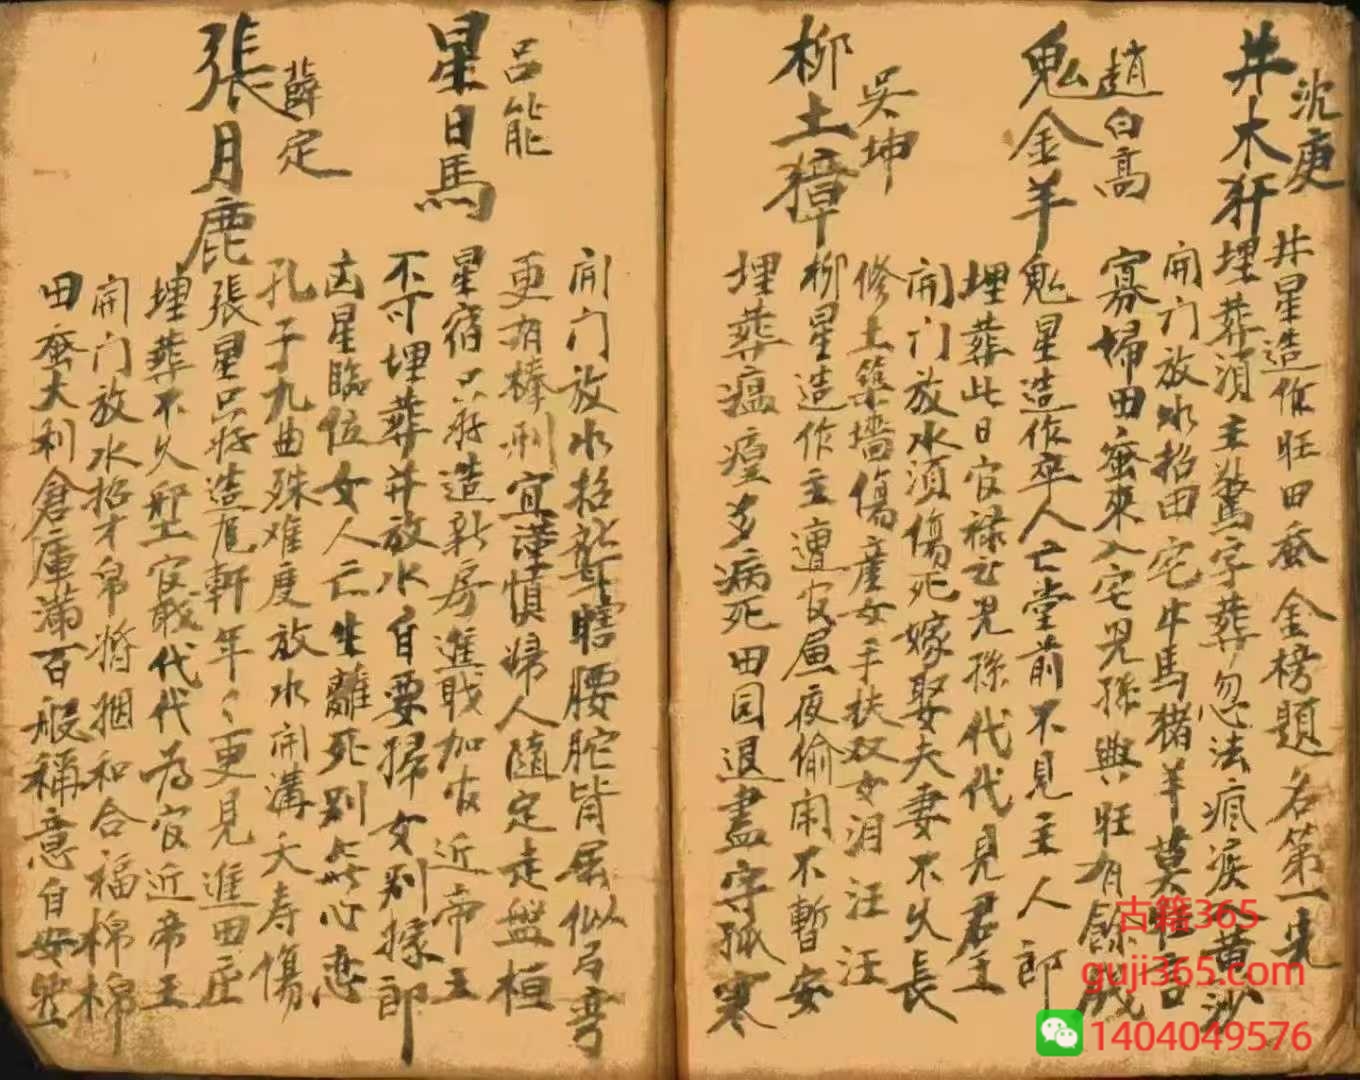 沈庚
井木犴
井星造作旺田蚕金榜題名第一先
埋葬湏主驚字葬忽法瘋疾入黄沙
開门放水招田宅牛馬猪羊莫旺言
寡婦田蚕來入宅児孫興旺有餘戝
趙白高
鬼金羊
鬼星造作卒人亡堂前不見主人郎
埋葬此日官禄至児孫代代見君王
開门放水湏傷死嫁娶夫妻不久長
修土築墻傷産女手扶双女泪汪汪
吳坤
柳土獐
柳星造作主遭官屋夜偷闹不暫安
埋葬瘟瘟多病死田园退盡守孤寒
開门放水招聾瞎腰駝背屈似弓弯
更有棒刑宜謹慎婦人隨定走盤桓
吕能
星日馬
星宿只好造新房進戝加官近帝王
不可埋葬并放水自要掃女别搽郎
凶星臨位女人亡生離死别無心恋
孔子九曲殊难度放水開溝夭寿傷
薛定
張月鹿
張星只好造尨軒年〻更見進田庄
埋葬不久陞官戝代代为官近帝王
開门放水招才帛婚姻和合福棉棉
田蚕大利倉庫滿百般稱意自安然
古籍365
guji365.com
1404049576